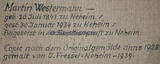 Martin Westermann -
geb. 20. Juli 1841 zu Neheim /
gest. 30. Januar 1924 zu Neheim.
zu Neheim.
Copie nach dem Originalgemälde anno 1922
gemalt von J. Fressel - Neheim - 1939.